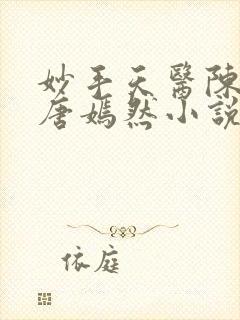 妙手天醫陳
唐嫣然小說
依庭